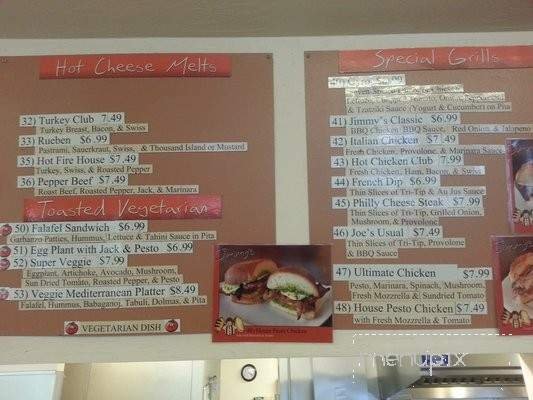 Hot Cheese Melts
32) Turkey Club 7.49
Turkey Breast, Bacon, & Swiss
33) Rueben $6.99
Pastrami, Sauerkraut, Swiss, & Thousand Island or Mustard
35) Hot Fire House $7.49
Turkey, Swiss, & Roasted Pepper
36) Pepper Beef $7.49
Roast Beef, Roasted Pepper, Jack, & Marinara
Toasted Vegetarian
50) Falafel Sandwich $6.99
Garbanzo Patties, Hummus, Lettuce & Tahini Sauce in Pita
51) Egg Plant with Jack & Pesto $6.99
52) Super Veggie $7.99
Eggplant, Artichoke, Avocado, Mushroom,
Sun Dried Tomato, Roasted Pepper, & Pesto
53) Veggie Mediterranean Platter $8.49
Falafel, Hummus, Babaganoj, Tabuli, Dolmas, & Pita
VEGETARIAN DISH
Jimmy's
48) House Pesto Chicken
Special Grills
40) Gyro
Tomato, Onion,
& Tzatziki Sauce (Yogurt & Cucumber) on Pita
41) Jimmy's Classic $6.99
BBQ Chicken, BBQ Sauce, Red Onion, & Jalapeno
42) Italian Chicken $7.49
Fresh Chicken, Provolone, & Marinara Sauce
43) Hot Chicken Club 7.99
Fresh Chicken, Ham, Bacon, & Swiss
44) French Dip $6.99
Thin Slices of Tri-Tip & Au Jus Sauce
45) Philly Cheese Steak $7.99
Thin Slices of Tri-Tip, Grilled Onion,
Mushroom, & Provolone
46) Joe's Usual $7.49
Thin Slices of Tri-Tip, Provolone
& BBQ Sauce
47) Ultimate Chicken $7.99
Pesto, Marinara, Spinach, Mushroom,
Fresh Mozzrella & Sundried Tomato
48) House Pesto Chicken $7.49
with Fresh Mozzrella & Tomato
menupix